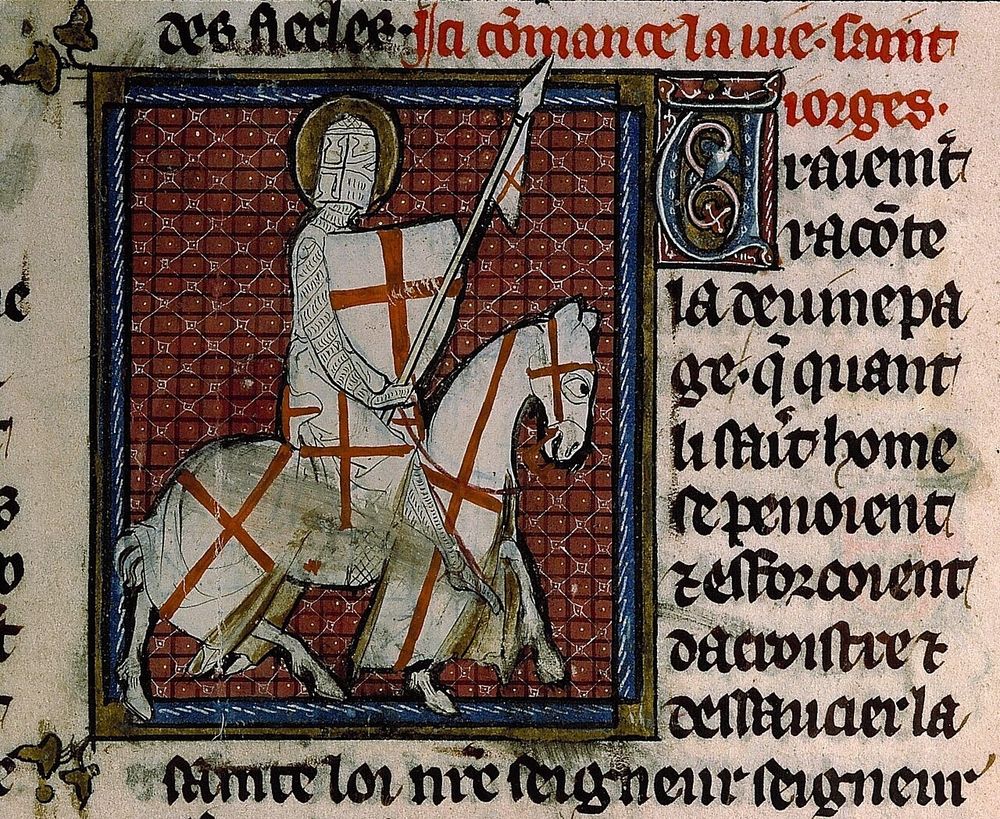 des siecles. Ici cōmance la uie. saint
iorges.
Uraiemt̄
racōte
la deuine pa
ge. q̄ quant
li sait̄ home
se penoient
⁊ esforcoient
dacroistre ⁊
dessaucier la
sainte loi nr̄e seigneur seigneur